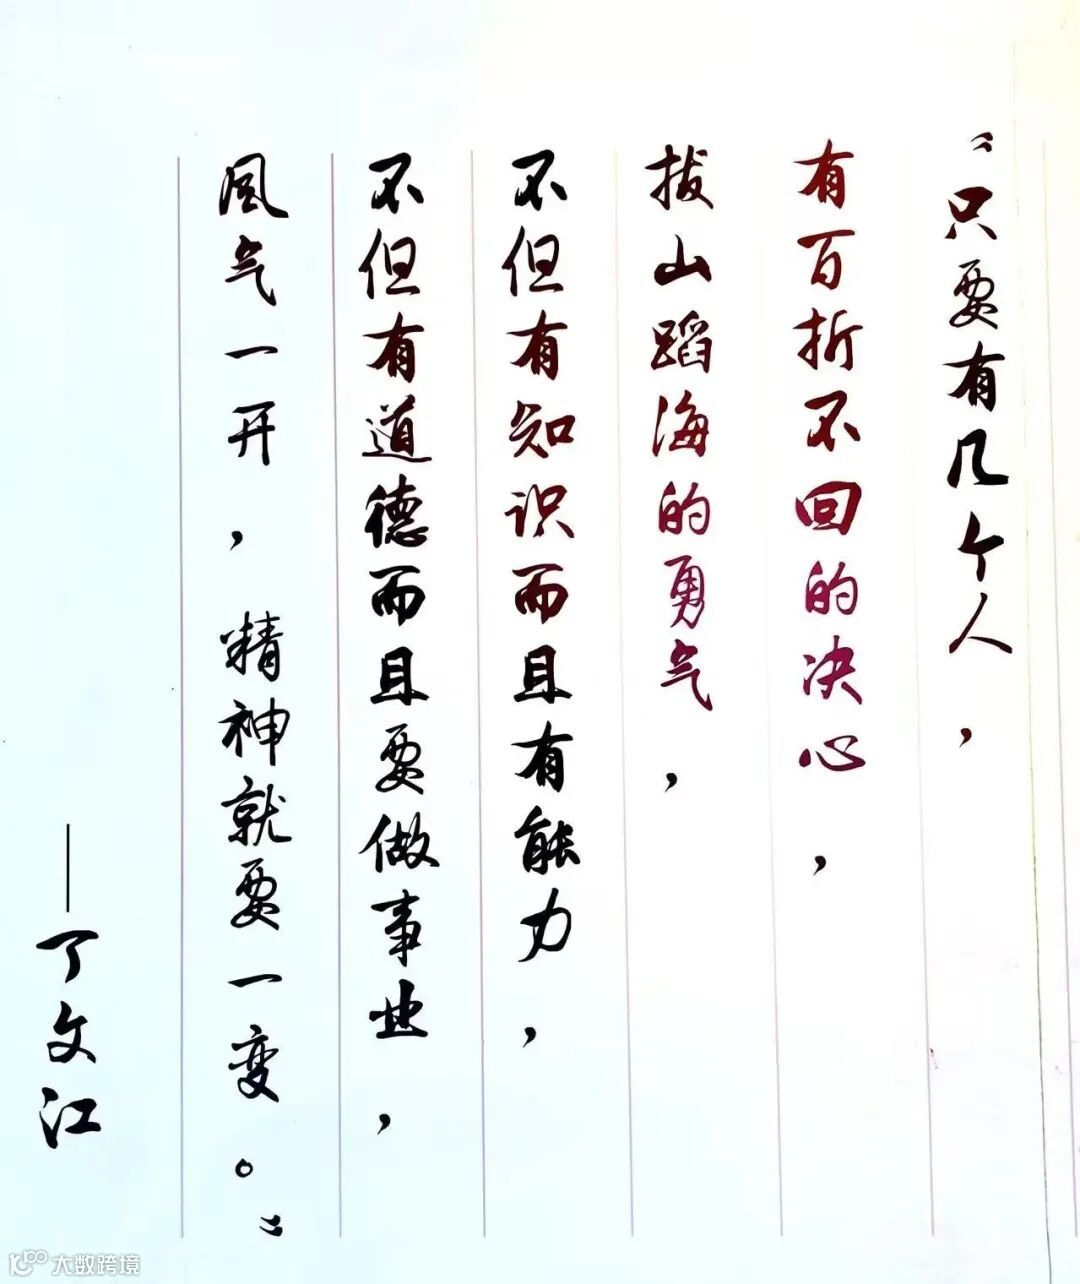 “只要有几个人，
有百折不回的决心，
拔山蹈海的勇气，
不但有知识而且有能力，
不但有道德而且要做事业，
风气一开，精神就要一变。”
——丁文江
大数跨境